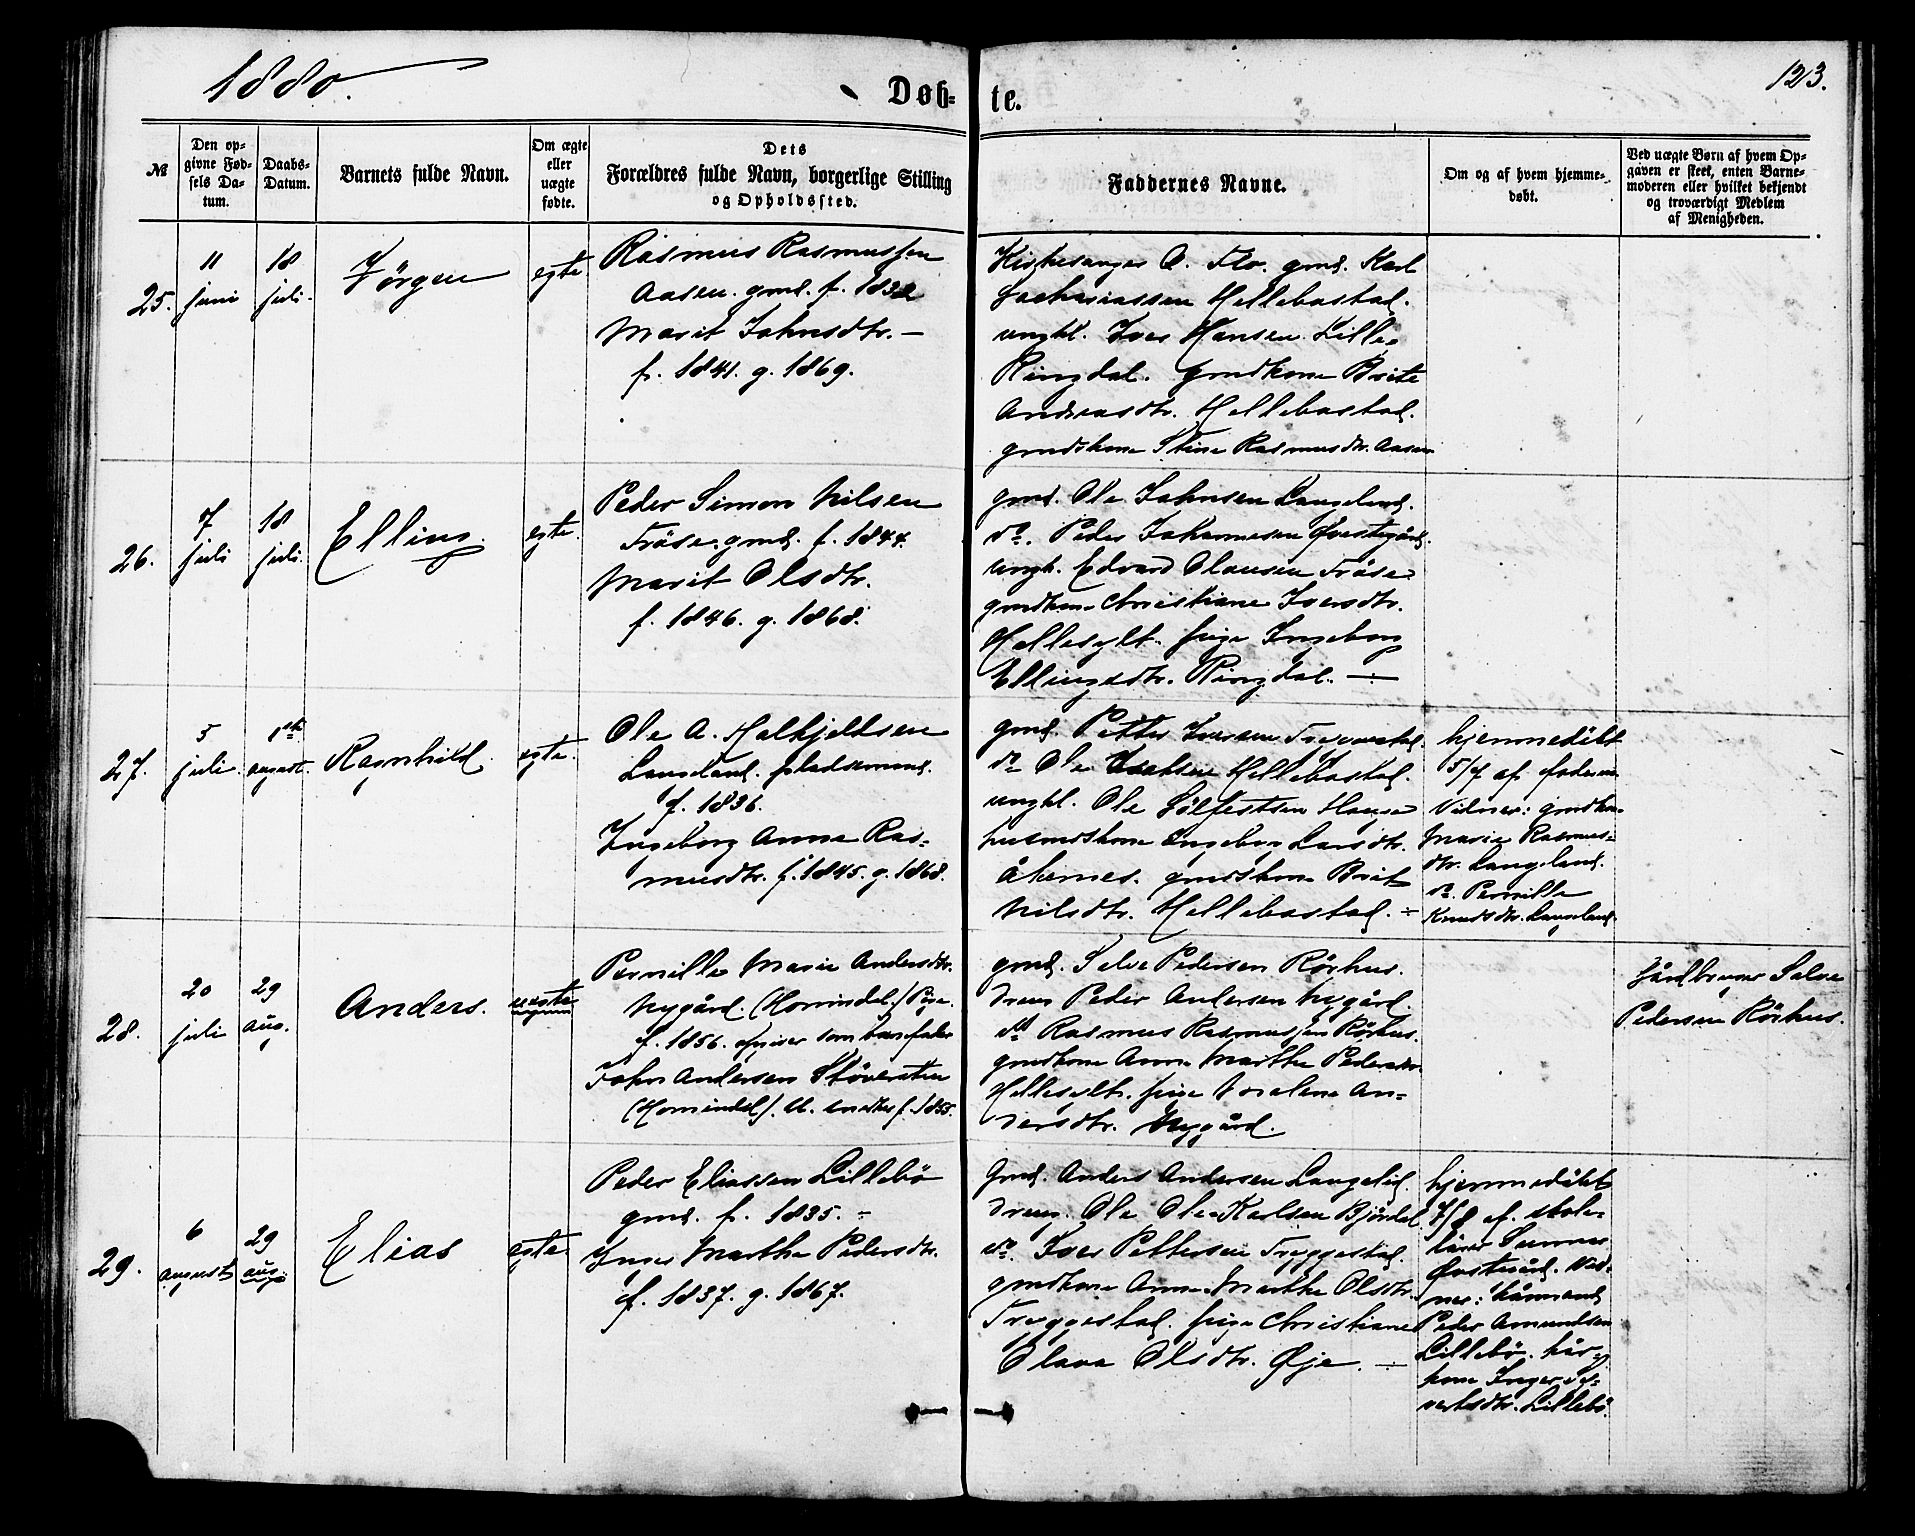 1880.
Døb-
te.
123.
№
Den op-
givne Fød-
sels Da-
tum.
Daabs-
Datum.
Barnets fulde Navn.
Om ægte
eller
uægte
fødte.
Dets
Forældres fulde Navn, borgerlige Stilling
og Opholdssted.
Faddernes Navne.
Om og af hvem hjemme-
døbt.
Ved uægte Børn af hvem Op-
gaven er skeet, enten Barne-
moderen eller hvilket bekjendt
og troværdigt Medlem
af Menigheden.
25.
11
juni
18
juli.
Jörgen
egte
Rasmus Rasmussen
Aasen. gmd. f. 1832
Marit Johnsdtr. —
f. 1841. g. 1869.
Kirkesanger O. Flo. gmd. Karl
Zachariassen Hellebostad.
ungkl. Iver Hansen Lille-
Ringdal. gmdkone Brite
Andreasdtr. Hellebostad.
gmdskone Stine Rasmusdtr. Aasen
26.
7
juli
18
juli.
Elling.
egte.
Peder Simon Nilsen
Fröse. gmd. f. 1844.
Marit Olsdtr.
f. 1846. g. 1868.
gmd. Ole Johnsen Langeland.
do. Peder Johannesen Øvstegård.
ungk. Edvard Olausen Fröse
gmdkone Christiane Iversdtr.
Hellesylt. pige Ingeborg
Ellingsdtr. Ringdal. —
27.
5
juli.
1ste
august.
Ragnhild.
egte.
Ole A. Halkjeldsen
Langeland. pladsemand.
f. 1836.
Ingeborg Anna Ras-
musdtr. f. 1845. g. 1868.
gmd. Petter Iversen Tryggestad.
do Ole Hellebostad.
ungkl. Ole Sölfestsen Hauge
husmdskone Ingeborg Larsdtr.
Åkernes. gmdskone Brit
Nilsdtr. Hellebostad. ÷
hjemmedöbt
5/7 af faderen
Vidner: gmdkone
Marie Rasmus-
dtr. Langeland.
do. Pernille
Knudsdtr. Langeland.
28.
20
juli
29
aug.
Anders.
uegte
Pernille Marie Andersdtr.
Nygård. (Hornindal.) Pige.
f. 1856. opgiver som barnefader
John Andersen Støverstein
(Hornindal). U. f. 1855.
gmd. Salve Pedersen Rörhus.
dreng Peder Andersen Nygård
do Rasmus Rasmussen Rörhus.
gmdkone Anne Marthe Pedersdtr.
Hellesylt. pige An-
dersdtr. Nygård.
Gårdbruger Salve
Pedersen Rörhus.
29.
6
august
29
aug.
Elias
egte.
Peder Eliassen Lillebö
gmd. f. 1835. –
Inger Marthe Pedersdtr.
f. 1837. g. 1867.
Gmd. Anders Andersen Langelid.
dreng. Ole Ole-Karlsen Björdal
do. Iver Pettersen Tryggestad.
gmdkone Anne Marthe Olsdtr.
Tryggestad. pige Christiane
Olava Olsdtr. Øje. —
hjemmedöbt
7/8 af skole-
lärer Gunnar
Øvstegård. Vid-
ner: kårmand
Peder Amundsen
Lillebö. kår-
kone Inger Sy-
vertsdtr. Lillebö.